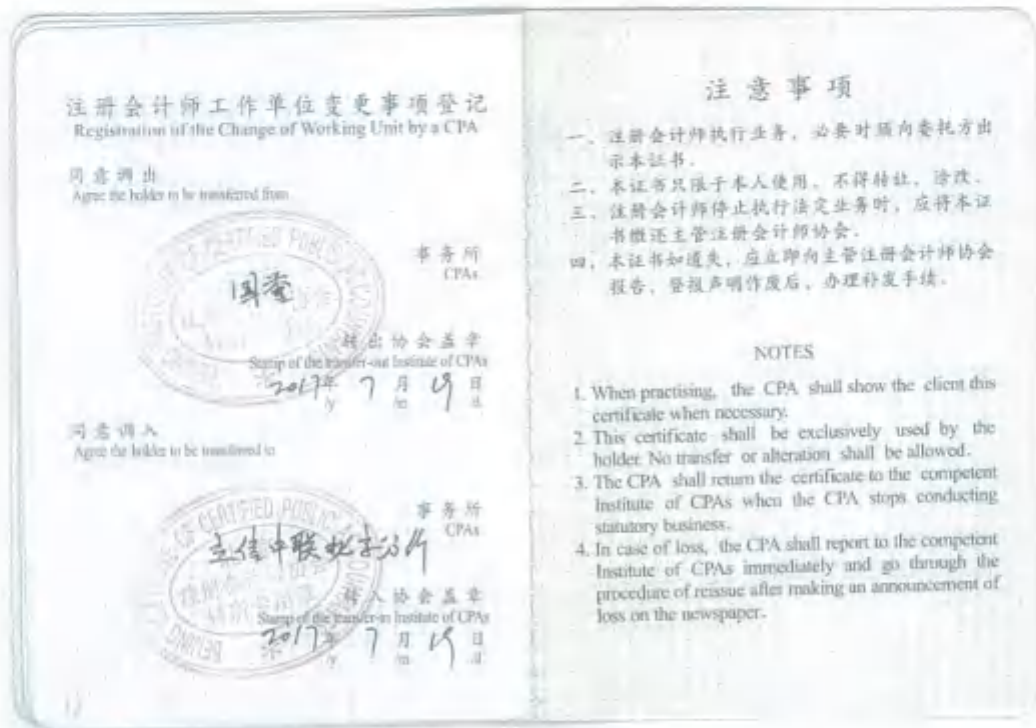 注册会计师工作单位变更事项登记
Registration of the Change of Working Unit by a CPA
同意调出
Agree the holder to be transferred from
国
事务所
CPAs
转出协会盖章
Stamp of the transfer-out Institute of CPAs
2017年 7月 19日
/y /m /d
同意调入
Agree the holder to be transferred to
事务所
CPAs
立信中联北京分所
转入协会盖章
Stamp of the transfer-in Institute of CPAs
2017年 7月 19日
/y /m /d
12
注意事项
一、注册会计师执行业务，必要时须向委托方出
示本证书。
二、本证书只限于本人使用，不得转让、涂改。
三、注册会计师停止执行法定业务时，应将本证
书缴还主管注册会计师协会。
四、本证书如遗失，应立即向主管注册会计师协会
报告，登报声明作废后，办理补发手续。
NOTES
1. When practising, the CPA shall show the client this
certificate when necessary.
2. This certificate shall be exclusively used by the
holder. No transfer or alteration shall be allowed.
3. The CPA shall return the certificate to the competent
Institute of CPAs when the CPA stops conducting
statutory business.
4. In case of loss, the CPA shall report to the competent
Institute of CPAs immediately and go through the
procedure of reissue after making an announcement of
loss on the newspaper.